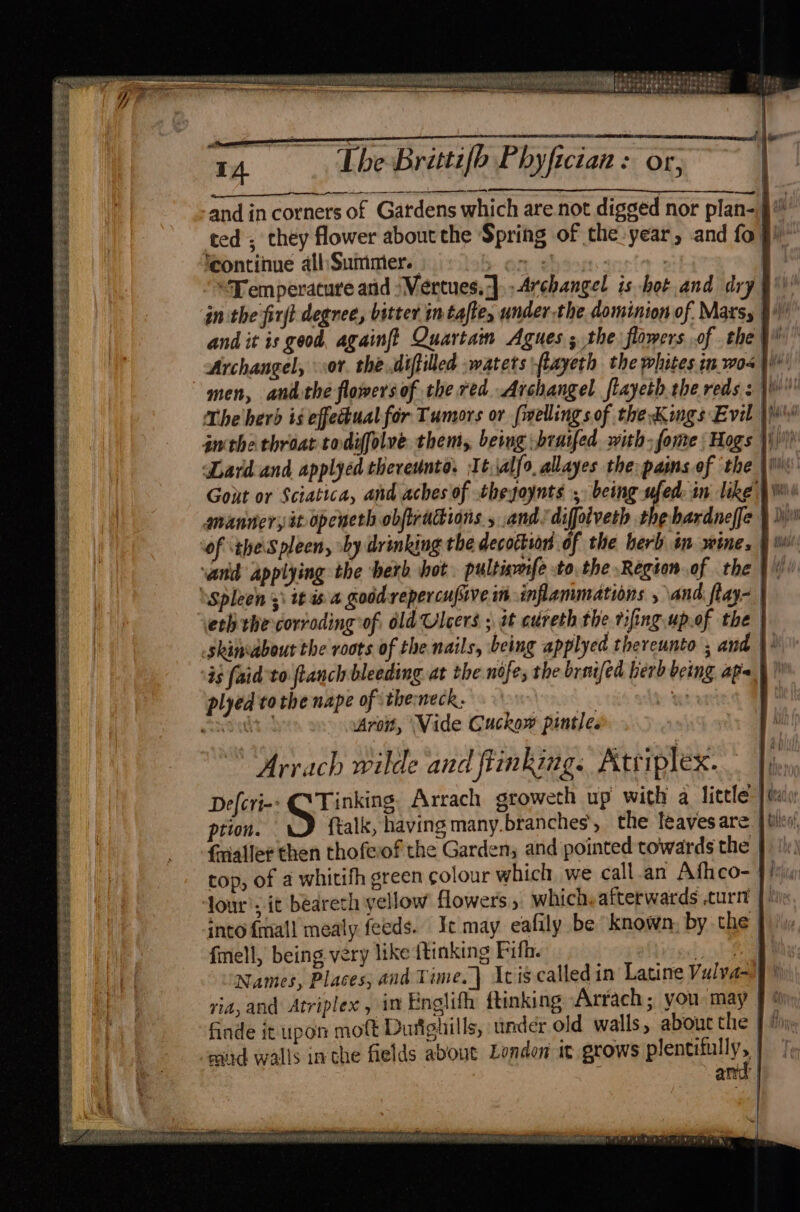 14 The Brittiſh Phyſician : or,
and in corners of Gardens which are not digged nor plan-
ted ; they flower about the Spring of the year, and ſo
continue all Summer.
Temperature and Vertues.] Archangel is hot and dry
in the firſt degree, bitter in taſte, under the dominion of Mars,
and it is good againſt Quartain Agues ; the flowers of the
Archangel, or the diſtilled waters ſtayeth the whites in wo-
men, and the flowers of the red Archangel ſtayeth the reds :
The herb is effectual for Tumors or ſwellings of the Kings Evil
in the throat to diſſolve them, being bruiſed with ſome Hogs
Lard and applyed thereunto. It alſo allayes the pains of the
Gout or Sciatica, and aches of the joynts ; being uſed in like
manner, it openeth obſtructions , and diſſolveth the hardneſſe
of the Spleen, by drinking the decoction of the herb in wine,
and applying the herb hot pultiswiſe to the Region of the
Spleen ; it is a good repercuſſive in inflammations , and ſtay-
eth the corroding of old Ulcers ; it cureth the riſing up of the
skin about the roots of the nails, being applyed thereunto ; and
is ſaid to ſtanch bleeding at the noſe, the bruiſed herb being ap-
plyed to the nape of the neck.
Aron, Vide Cuckow pintle.
Arrach wilde and ſtinking. Atriplex.
Deſcri-
ption. STinking Arrach groweth up with a little
ſtalk, having many branches, the leaves are
ſmaller then thoſe of the Garden, and pointed towards the
top, of a whitiſh green colour which we call an Aſhco-
lour ; it beareth yellow flowers, which afterwards turn
into ſmall mealy ſeeds. It may eaſily be known by the
ſmell, being very like ſtinking Fiſh.
Names, Places, and Time.] It is called in Latine Vulva-
ria, and Atriplex , in Engliſh ſtinking Arrach ; you may
finde it upon moſt Dunghills, under old walls, about the
mud walls in the fields about London it grows plentifully,
and